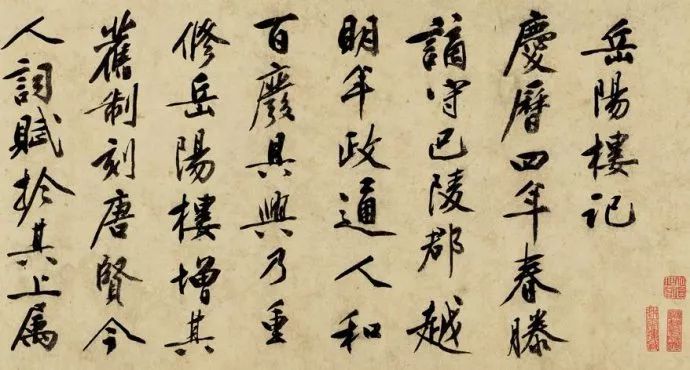 岳陽樓記
慶曆四年春滕
謫守巴陵郡越
明年政通人和
百廢具興乃重
修岳陽樓增其
舊制刻唐賢今
人詞賦於其上属